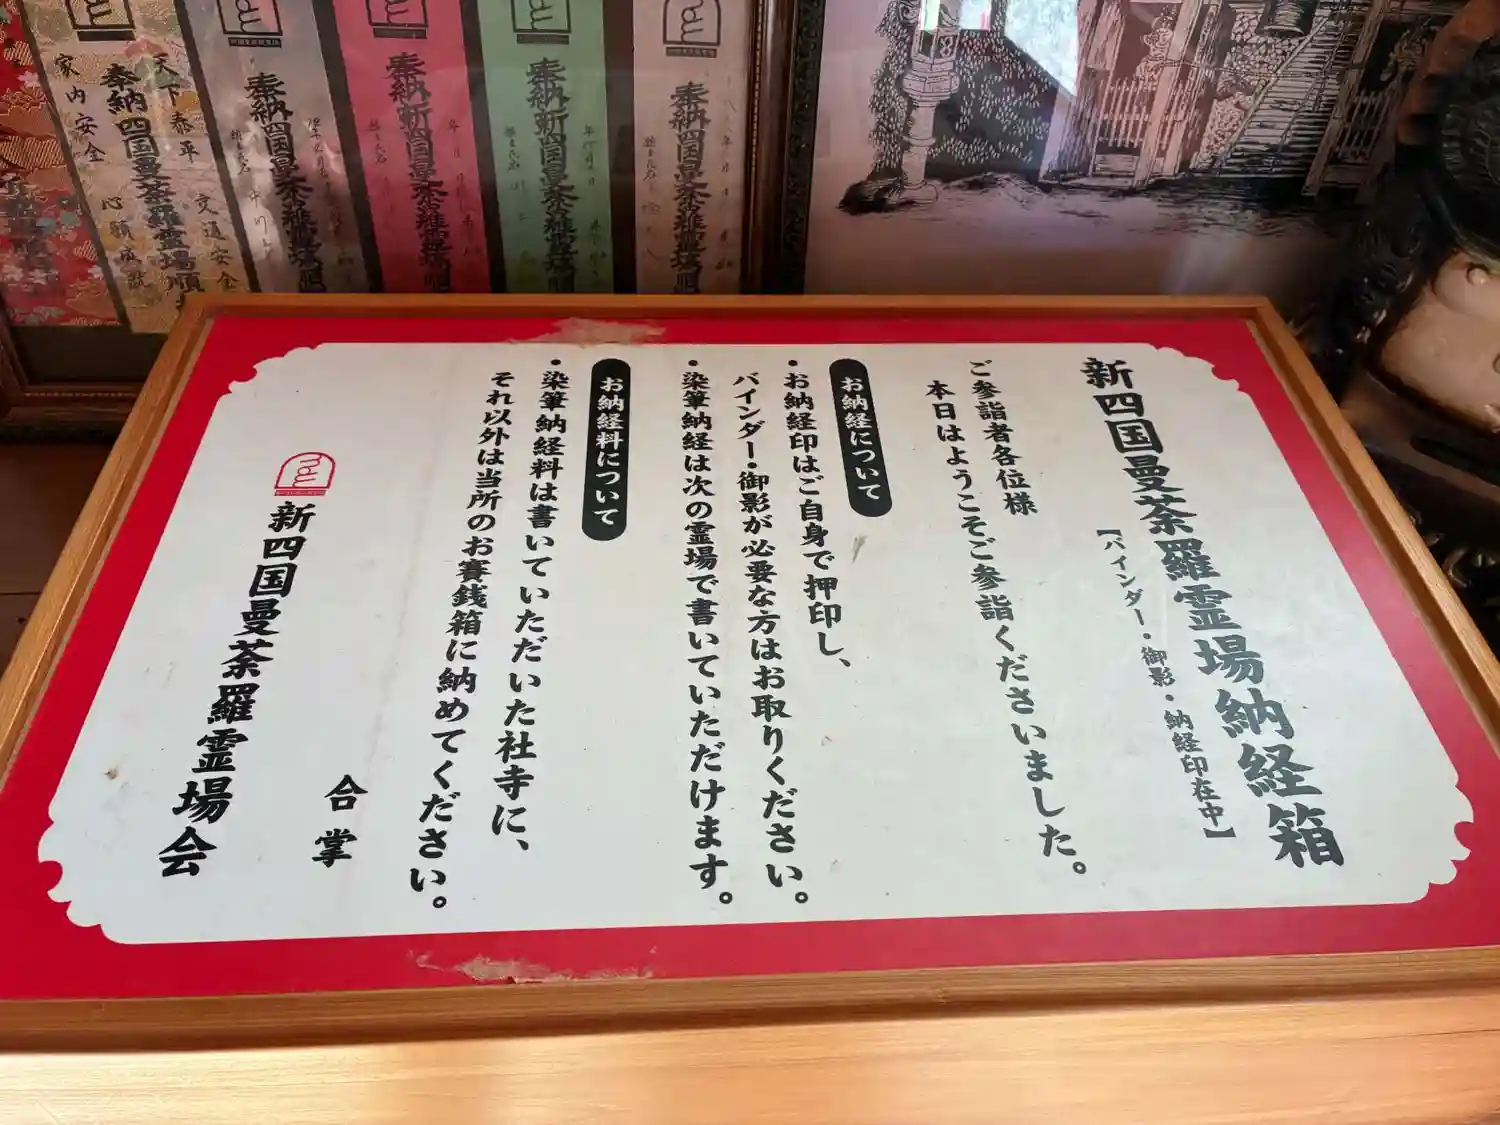 新四国曼荼羅霊場納経箱
【バインダー・御影・納経印在中】
ご参詣者各位様
本日はようこそご参詣くださいました。
お納経について
・お納経印はご自身で押印し、
バインダー・御影が必要な方はお取りください。
・染筆納経は次の霊場で書いていただけます。
お納経料について
・染筆納経料は書いていただいた社寺に、
それ以外は当所のお賽銭箱に納めてください。
合掌
新四国曼荼羅霊場会
奉納新四国曼荼羅霊場順
奉納新四国曼荼羅霊場順
奉納新四国曼荼羅霊場順
奉納四国曼荼羅霊場順
天下泰平 交通安全
奉納四国曼荼羅霊場順
家内安全 心願成就